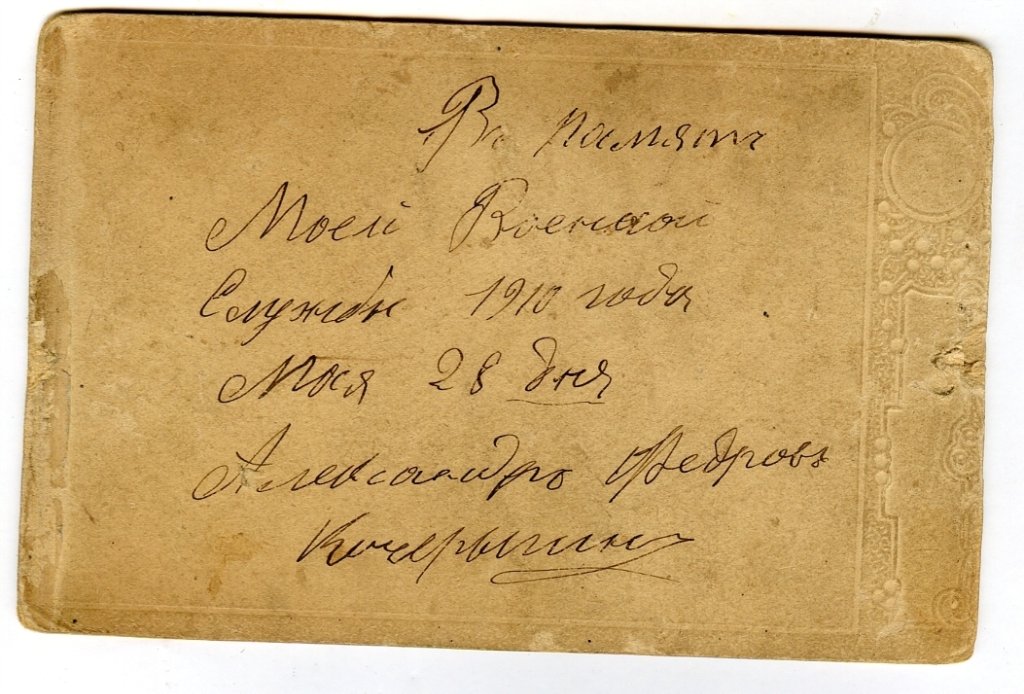 Въ память
Моей Военной
Службы 1910 года
Мая 28 дня
Александръ Федровъ
Кочерыгинъ